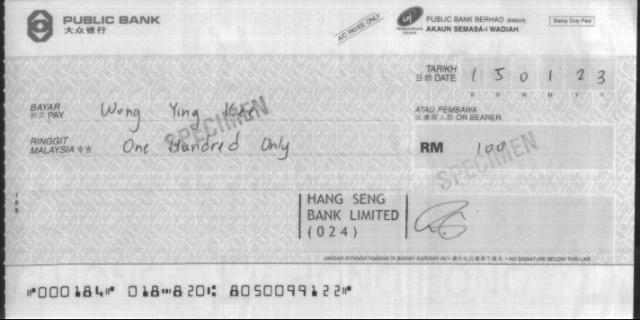 PUBLIC BANK
大众银行
A/C PAYEE ONLY
PUBLIC BANK BERHAD (6463H)
AKAUN SEMASA-i WADIAH
Stamp Duty Paid
TARIKH
日期 DATE 1 5 0 1 2 3
D D M M Y Y
BAYAR
PAY Wong Ying
ATAU PEMBAWA
OR BEARER
SPECIMEN
RINGGIT
MALAYSIA One Hundred Only
RM 100
SPECIMEN
HANG SENG
BANK LIMITED
(024)
JANGAN DITANDATANGANI DI BAWAH GARISAN INI • NO SIGNATURE BELOW THIS LINE
⑈000184⑈ 018⑉820⑆ 8050099122⑈